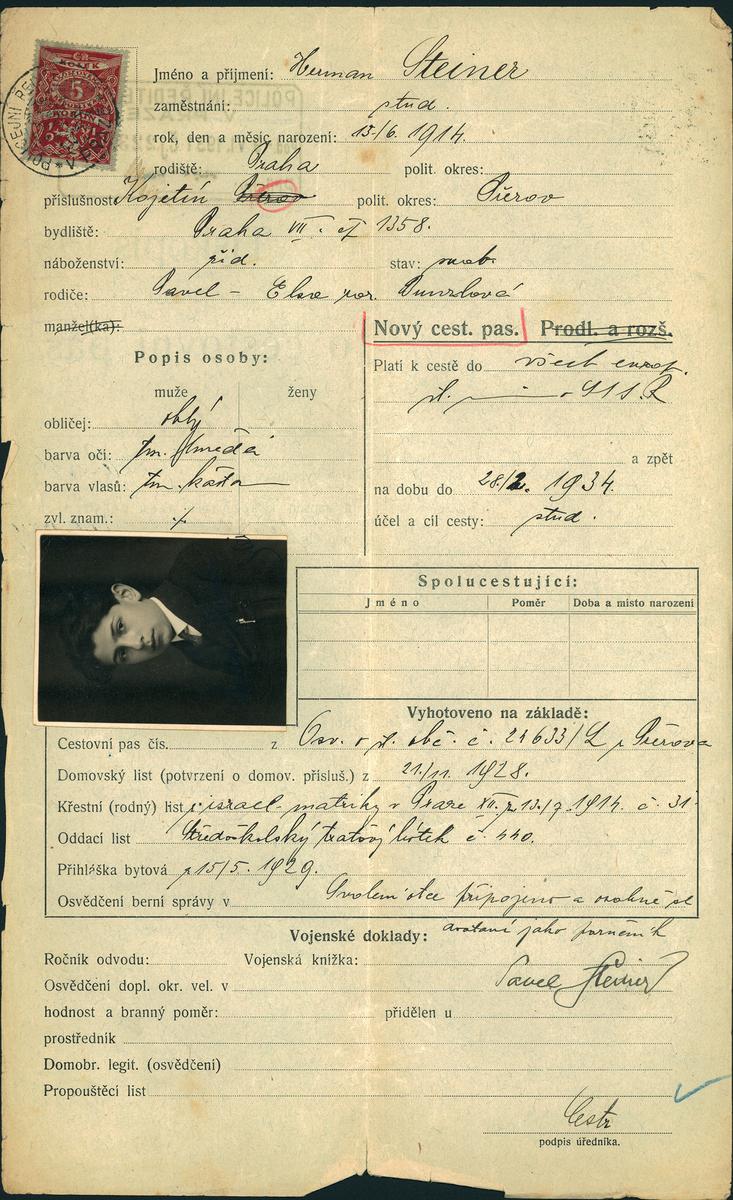 ČR
KOLEK
5
POLICEJNÍ ŘEDITEL
Jméno a příjmení: Herman Steiner
zaměstnání: stud.
rok, den a měsíc narození: 13./6. 1914.
rodiště: Praha polit. okres:
příslušnost Kojetín Přerov polit. okres: Přerov
bydliště: Praha VII. čp 1358.
náboženství: žid. stav: svob.
rodiče: Pavel – Elsa roz.
manžel(ka):
Nový cest. pas. Prodl. a rozš.
Popis osoby:
Platí k cestě do všech europ.
muže ženy
st. SSSR
obličej: oblý
barva očí: tm. hnědá
a zpět
barva vlasů: tm. kašta
na dobu do 28./2. 1934.
zvl. znam.: ·/.
účel a cíl cesty: stud.
Spolucestující:
Jméno Poměr Doba a místo narození
Vyhotoveno na základě:
Cestovní pas čís. z Osv. o st. obč. č. 24633/ z Přerova
Domovský list (potvrzení o domov. přísluš.) z 21./11. 1928.
Křestní (rodný) list z israel. matriky v Praze z 13./7. 1914. č. 31
Oddací list Středoškolský traťový lístek č. 440.
Přihláška bytová z 15/5. 1929.
Osvědčení berní správy v Svolení otce připojeno a osobně se
dostavil jako poručník
Vojenské doklady:
Ročník odvodu: Vojenská knížka:
Pavel Steiner
Osvědčení dopl. okr. vel. v
hodnost a branný poměr: přidělen u
prostředník
Domobr. legit. (osvědčení)
Propouštěcí list
podpis úředníka.